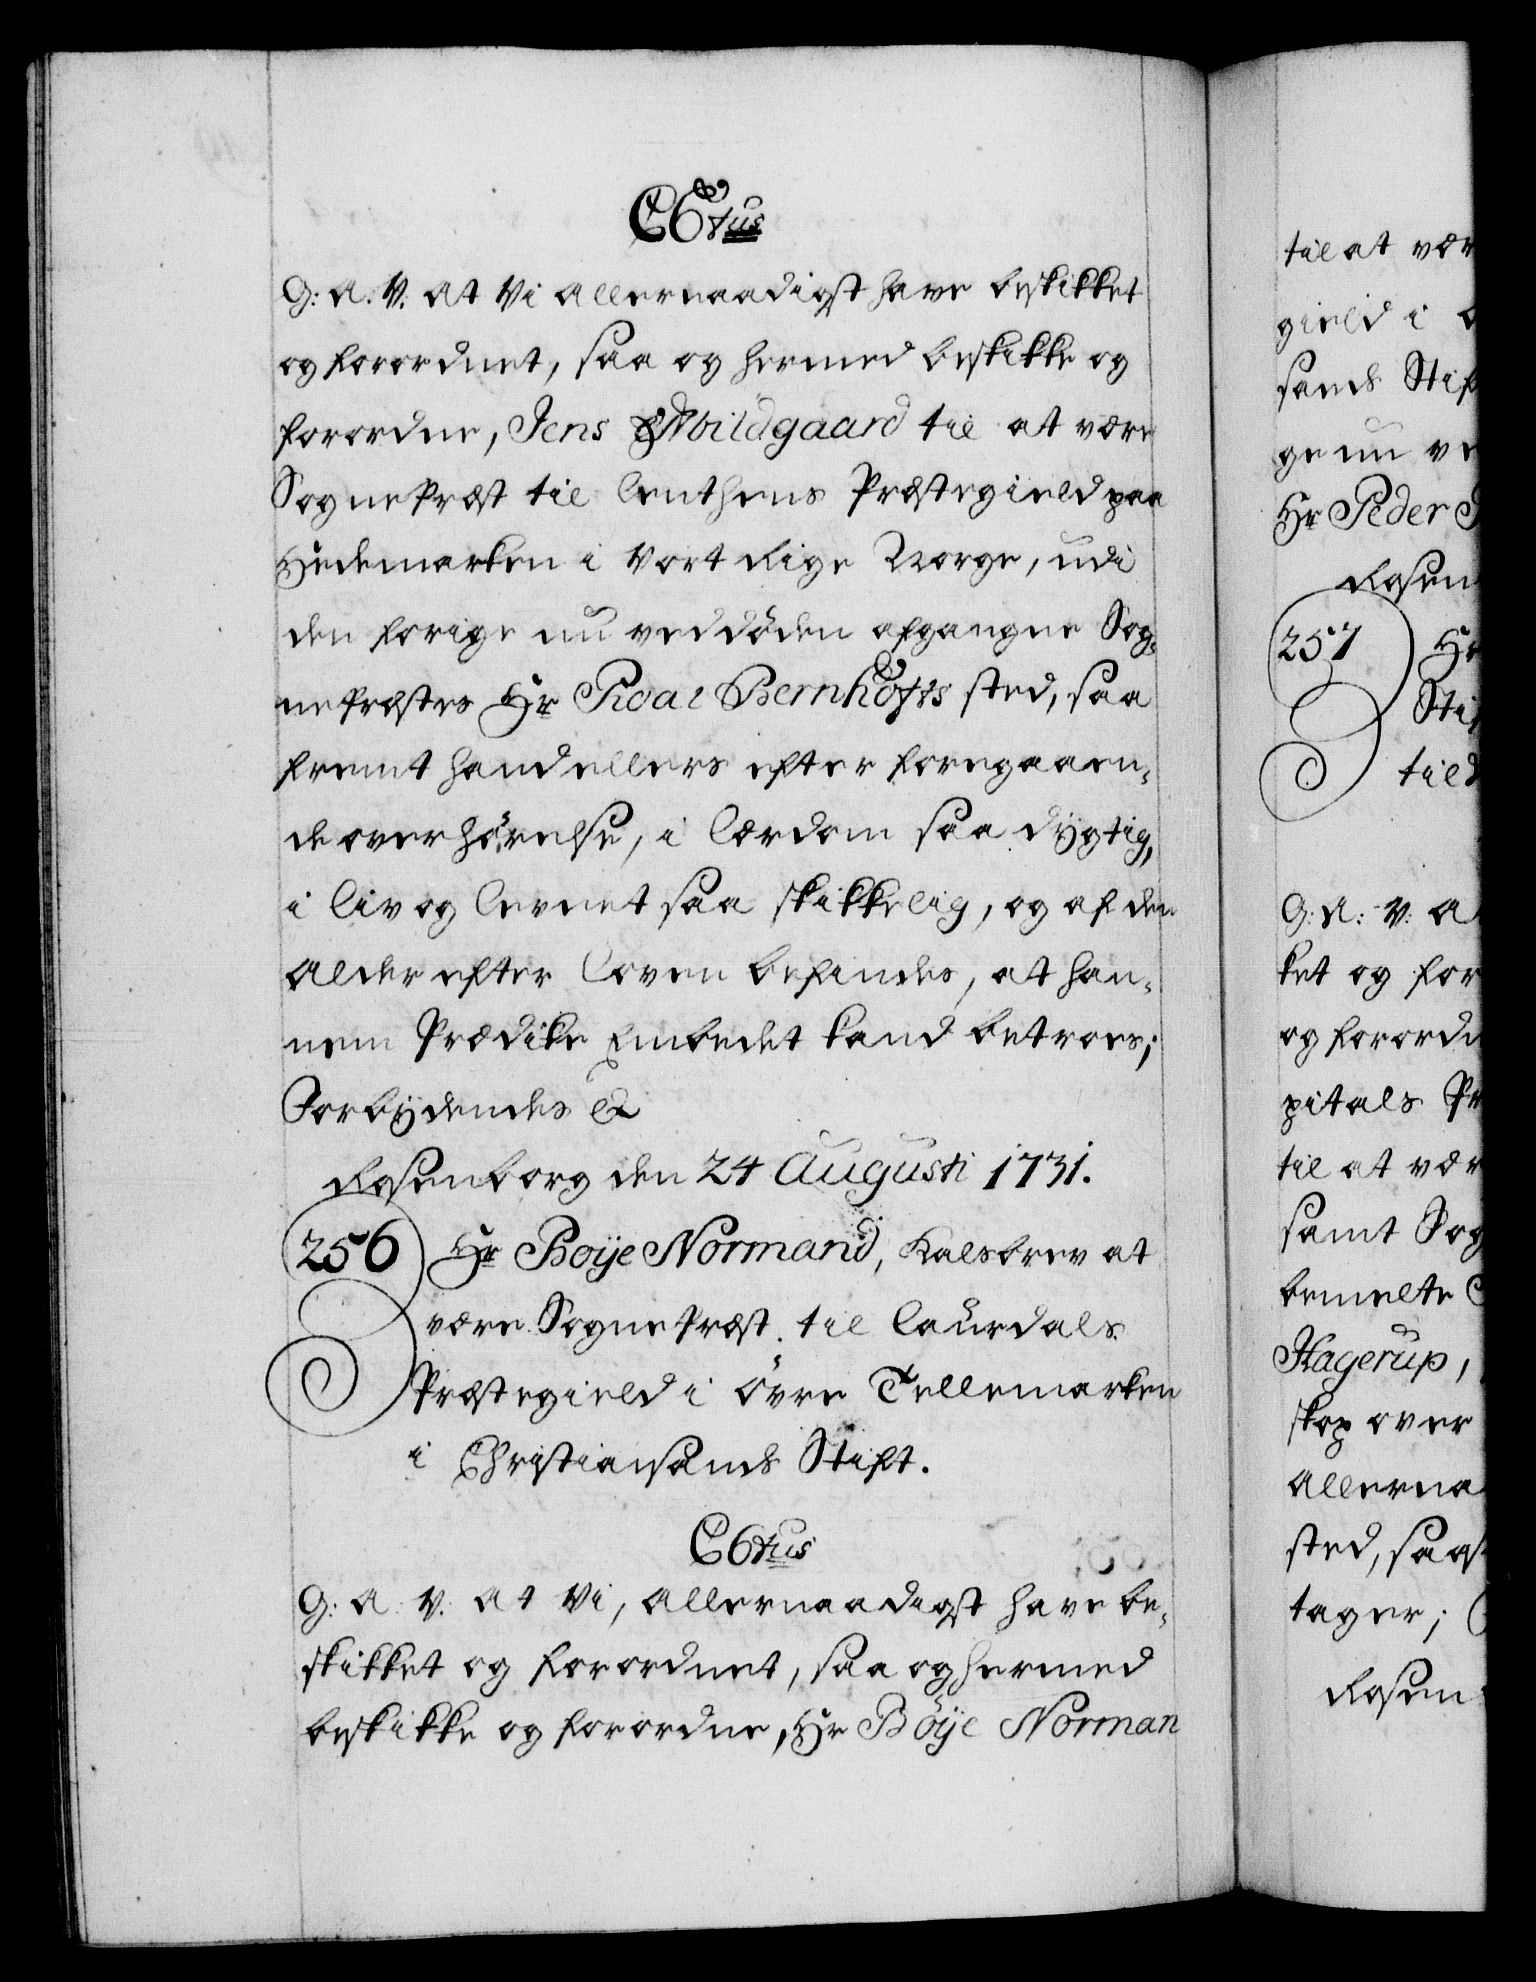 C6tus
G: A. V. At Vi Allernaadigst have beskikket
og forordnet, saa og hermed beskikke og
forordne, Jens Abildgaard til at være
SognePræst til Leuthens Præstegield paa
Hedemarken i Vort Rige Norge, udi
den forige nu ved döden afgangne Sog-
nePræstes Hr Roal Bernhofts sted, saa
fremt hand ellers efter foregaaen-
de overhörelse, i Lærdom saa dygtig,
i Liv og Levnet saa skikkelig, og af den
Alder efter Loven befindes, at han-
nem Prædike Embedet kand betroes;
Forbydendes &
Rosenborg den 24 Augusti 1731.
256 Hr Boije Normand, Kalsbrev at
være SognePræst til Laurdals
Præstegield i Övre Tellemarken
i Christiansands Stift.
C6tus
G: A. V. At Vi, Allernaadigst have be-
skikket og forordnet, saa og hermed
beskikke og forordne, Hr Böije Norman
til at vær
gield i
sands Stif
ge nu ve
Hr Peder
Rosen
257 Hr
Sti
til
G: A: V: A
ket og for
og forordn
pitals Pr
til at vær
samt Sog
bemelte
Hagerup,
skop over
Allerna
sted, saa
tager;
Rosen